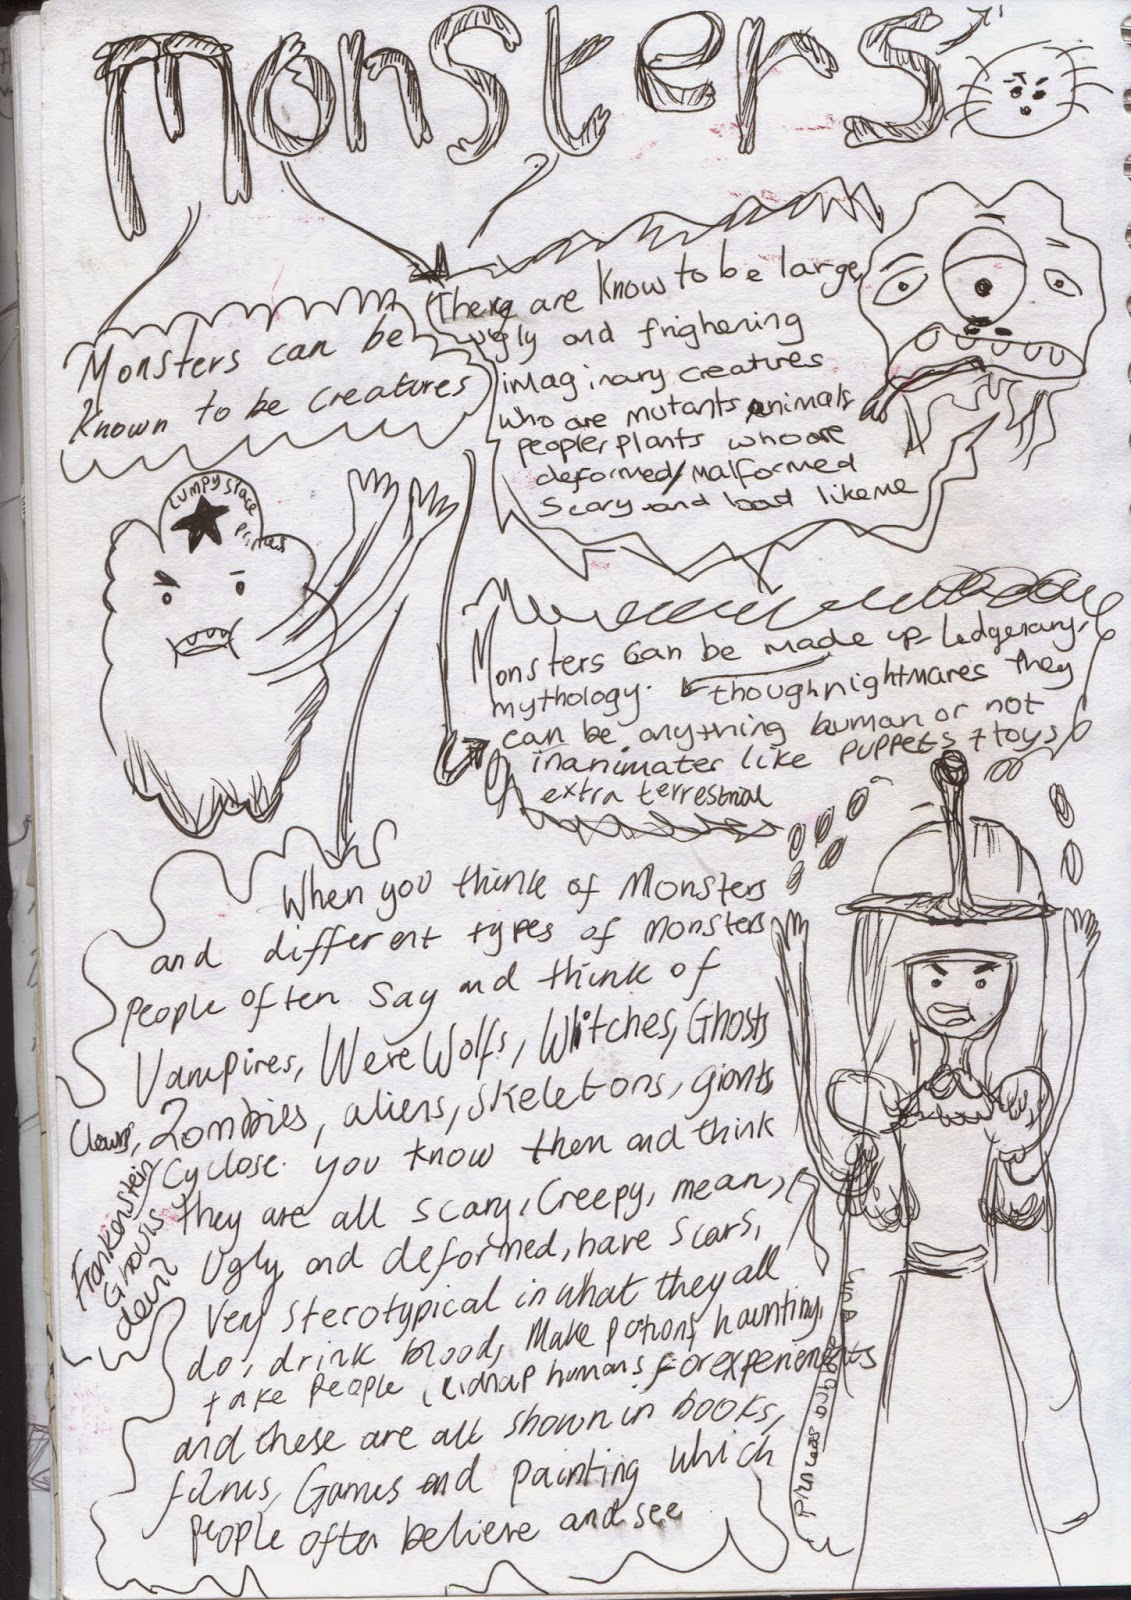 Monsters
Monsters can be
Known to be creatures
There are Know to be large,
ugly and frighening
imaginary creatures
who are mutants, animals
people, plants who are
deformed/malformed
Scary and bad like me
Lumpy Space
Princess
Monsters can be made up, ledgerary,
mythology. though nightmares they
can be anything human or not
inanimater like puppets + toys
extra terrestrial
When you think of Monsters
and different types of monsters
People often say and think of
Vampires, WereWolfs, Witches, Ghosts
Clowns, Zombies, aliens, skeletons, giants
Cyclose. you know them and think
Frankenstein
Ghouls
devil
they are all scary, Creepy, mean,
Ugly and deformed, have scars,
Very sterotypical in what they all
do, drink blood, Make potions, haunting,
take people, kidnap humans for experiements
and these are all shown in books,
films, Games and painting which
people often believe and see
Princess